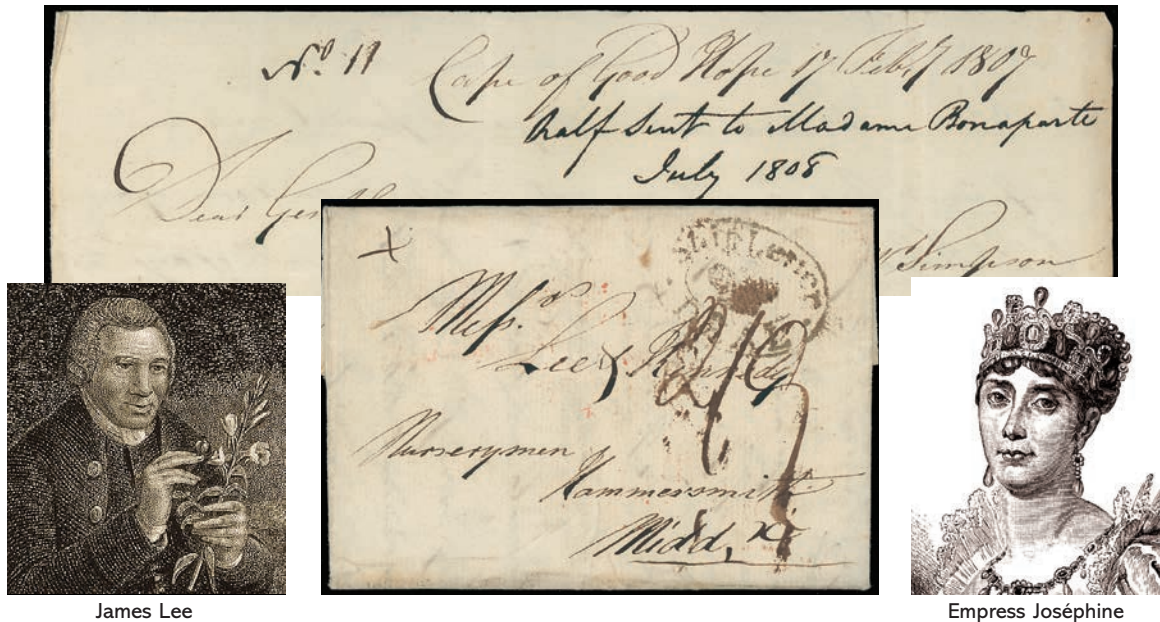 No. 11 Cape of Good Hope 17 Feby 1807
half Sent to Madame Bonaparte
July 1808
Dear
Simpson
x
Messrs.
Lee & Kennedy
Nurserymen
Hammersmith
Middx
James Lee
Empress Joséphine